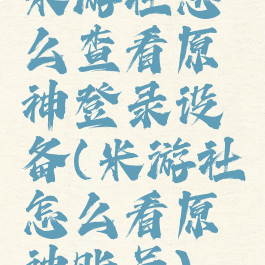 米游社怎
么查看原
神登录设
备(米游社
怎么看原
神账号)